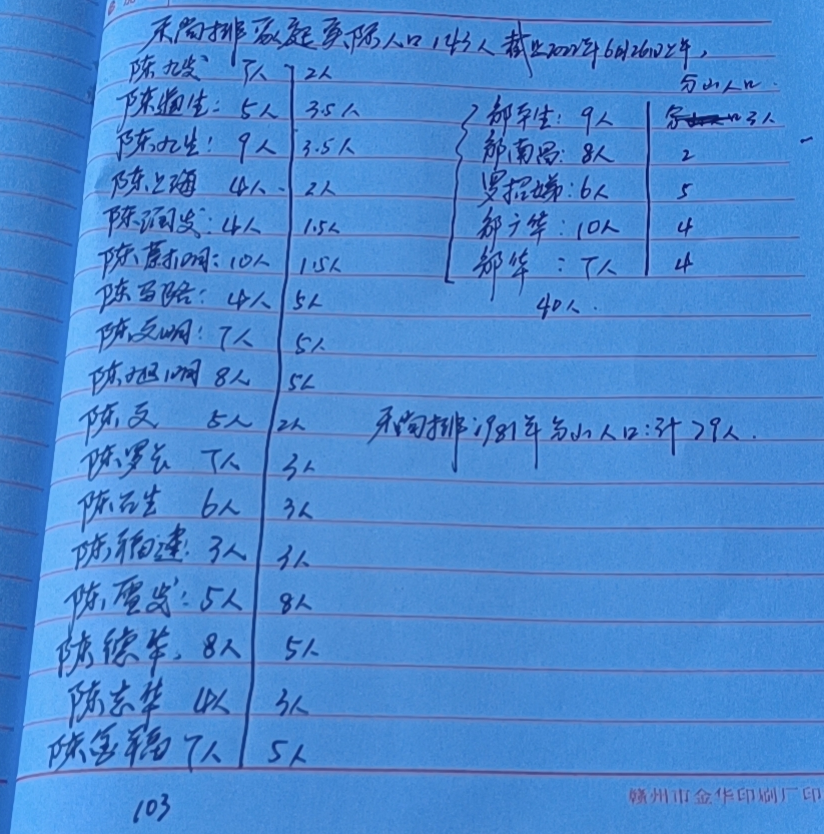 禾尚排家庭实际人口143人截止2022年6月26日上午,
分山人口.
陈九发 7人 2人
陈道生: 5人 3.5人
陈九生: 9人 3.5人
陈上海 4人. 2人
陈润发: 4人 1.5人
陈明: 10人 1.5人
陈: 4人 5人
陈文明: 7人 5人
陈旭明 8人 5人
陈文 5人 2人
陈罗长 7人 3人
陈石生 6人 3人
陈福建: 3人 3人
陈雪发: 5人 8人
陈德华. 8人 5人
陈志华 4人 3人
陈金福 7人 5人
103
邹平生: 9人 3人
邹南昌: 8人 2
罗招娣: 6人 5
邹广华: 10人 4
邹华: 7人 4
40人.
禾尚排:1981年分山人口:计79人.
赣州市金华印刷厂印